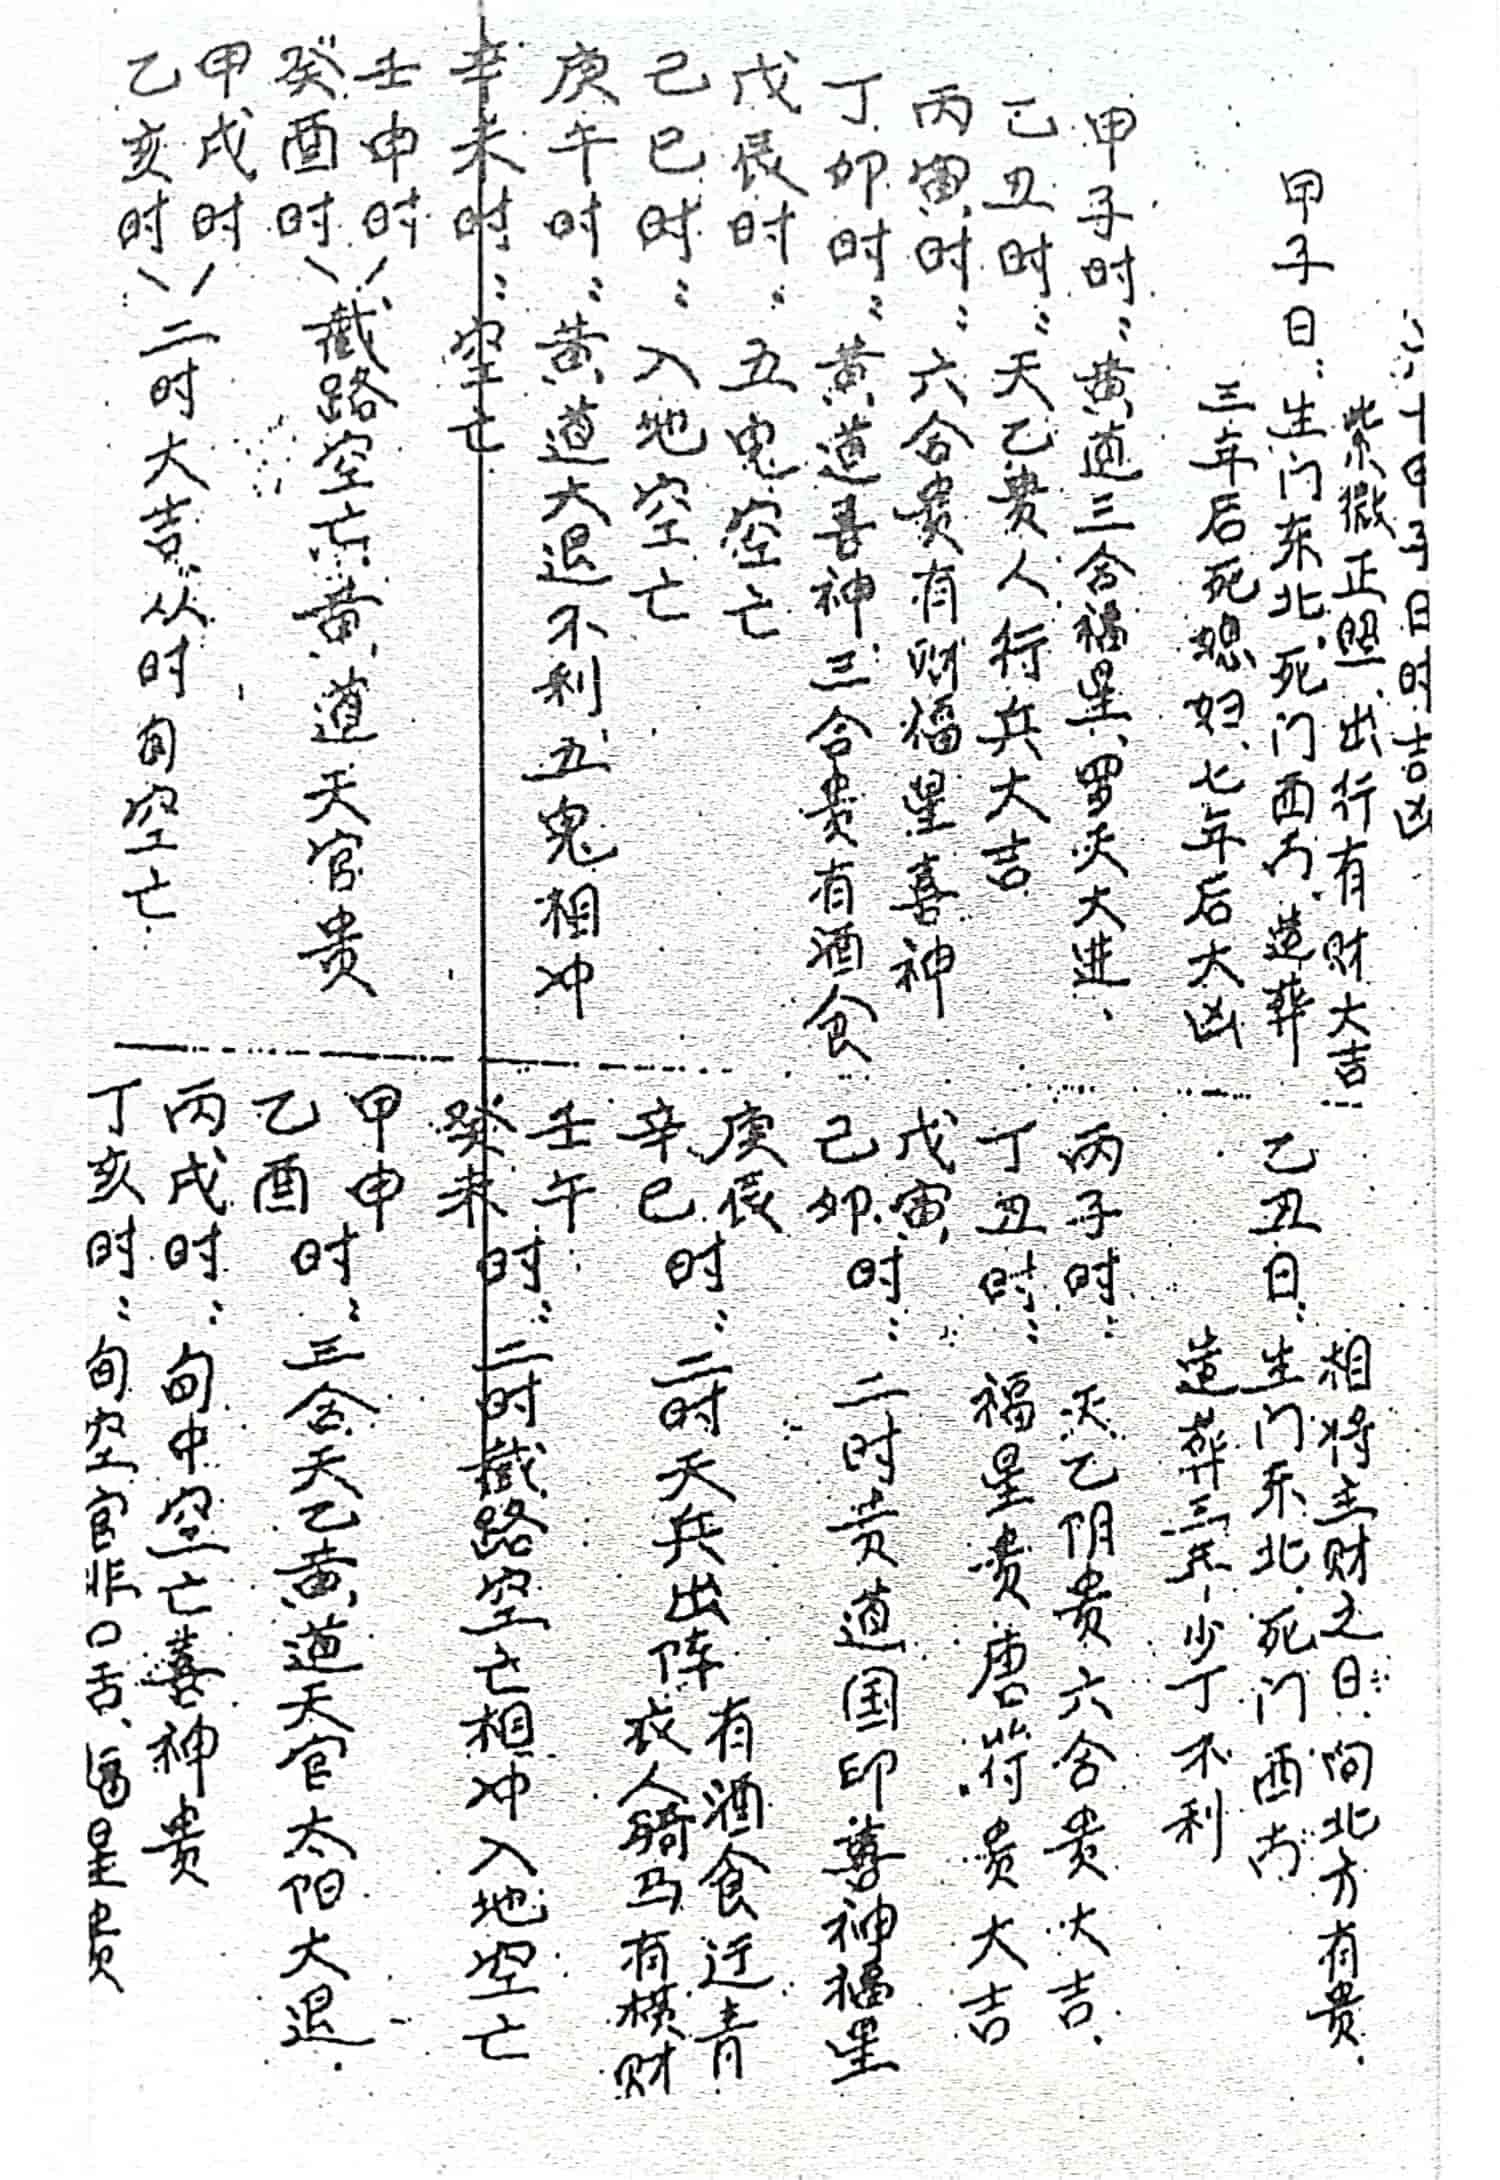 六十甲子日时吉凶
紫微正照、出行有财大吉
甲子日：生门东北、死门西南、造葬
三年后死媳妇、七年后大凶
甲子时：黄道三合福星、罗天大进、
乙丑时：天乙贵人行兵大吉
丙寅时：六合贵有财福星喜神
丁卯时：黄道喜神、三合贵有酒食
戊辰时：五鬼空亡
己巳时：入地空亡
庚午时：黄道大退不利、五鬼相冲
辛未时：空亡
壬申时
癸酉时
截路空亡、黄道天官贵
甲戌时
乙亥时
二时大吉、从时旬空亡
相将主财之日、向北方有贵、
乙丑日：生门东北、死门西南
造葬三年少丁不利
丙子时：天乙阴贵六合贵大吉、
丁丑时：福星贵唐符贵大吉
戊寅
己卯
时：二时贵道国印喜神福星
庚辰
辛巳
时：二时天兵出阵
有酒食迁青
衣人骑马有横财
壬午
癸未
时：二时截路空亡相冲入地空亡
甲申
乙酉
时：三合天乙黄道天官太阳大退、
丙戌时：旬中空亡喜神贵
丁亥时：旬空官非口舌、福星贵